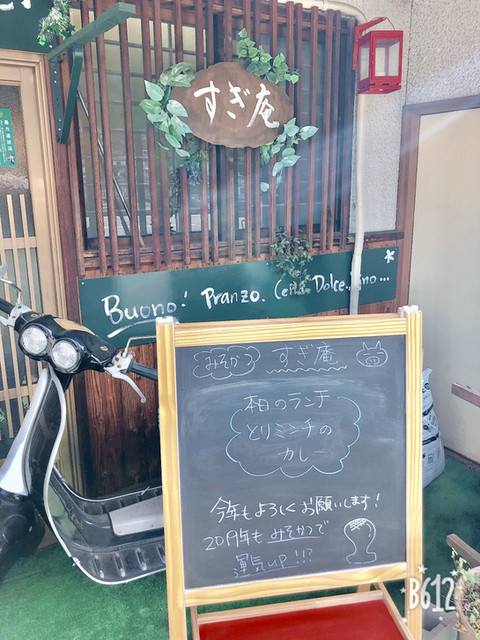 すぎ庵
Buono! Pranzo. Cena Dolce. Vino...
みそかつ すぎ庵
本日のランチ
とりミンチの
カレー
今年もよろしくお願いします!
2019年もみそかつで
運気UP!!?
B612